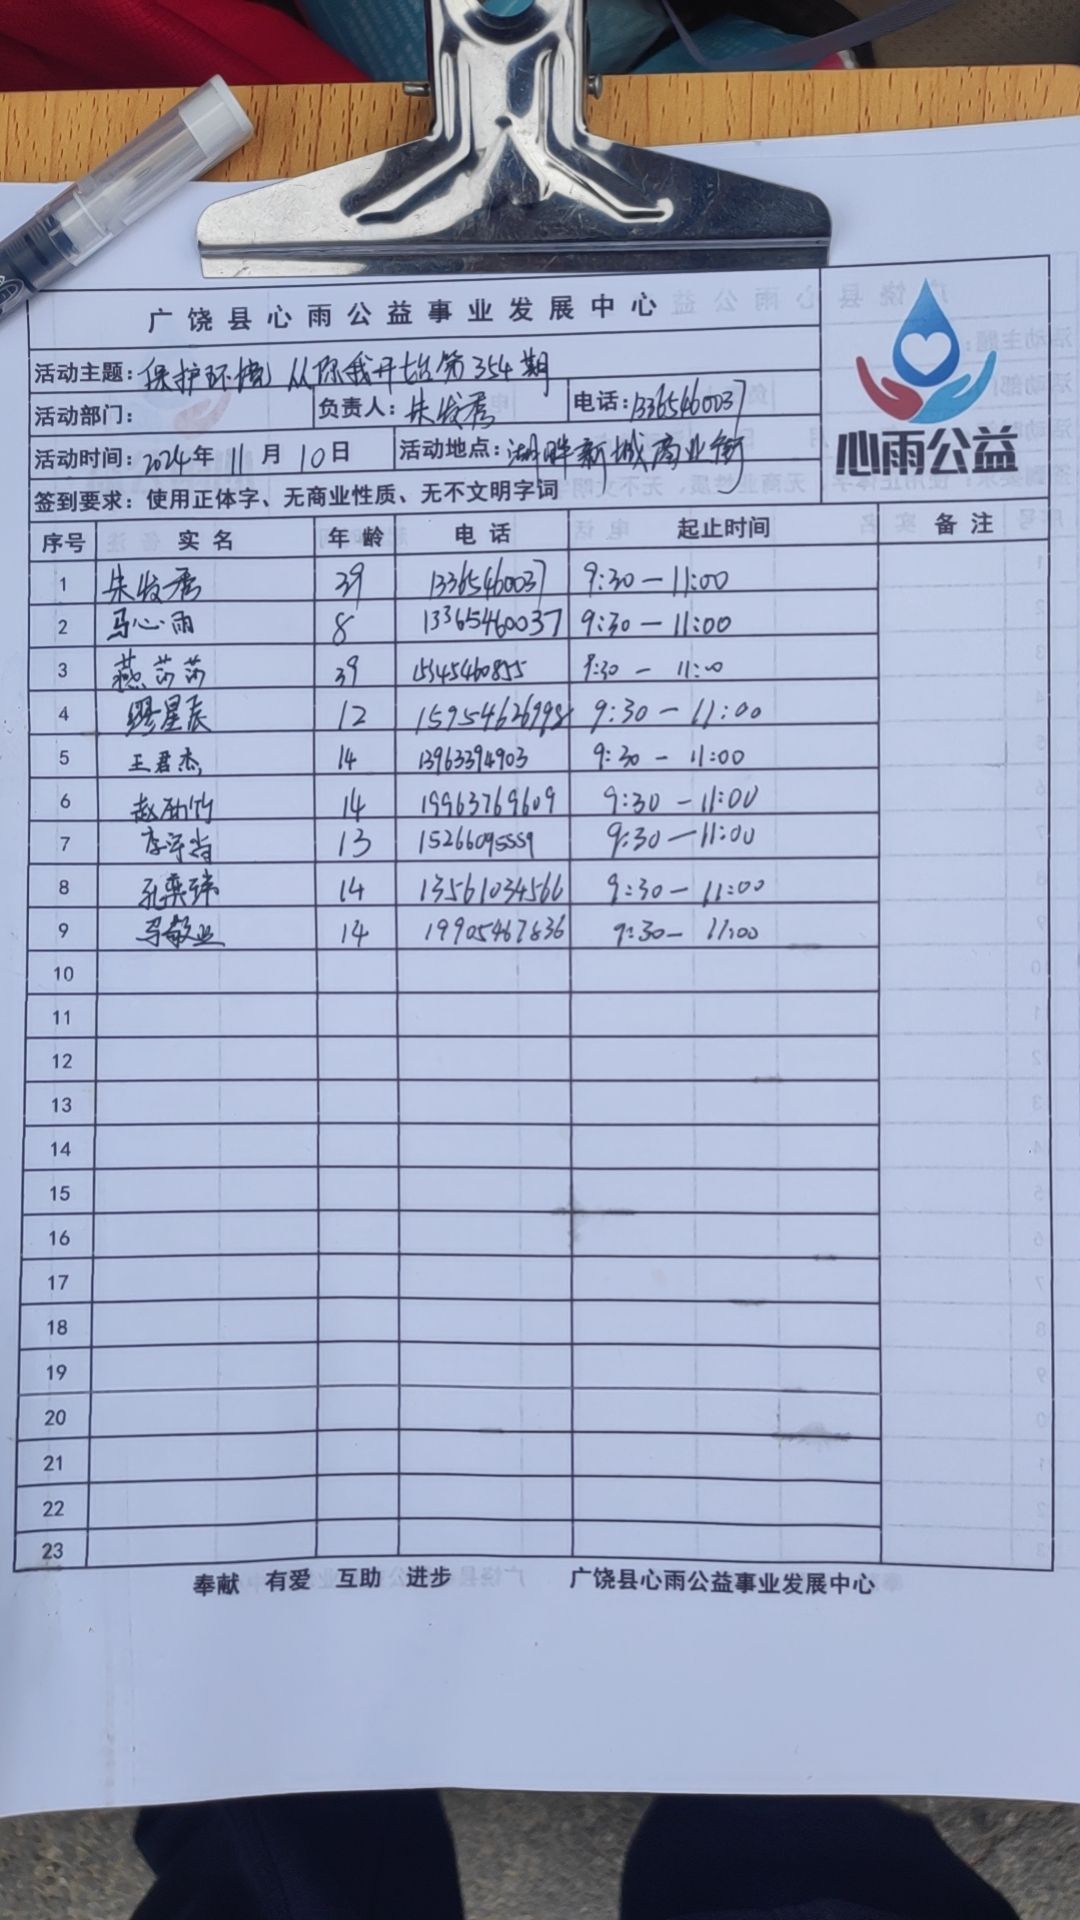 广饶县心雨公益事业发展中心
活动主题：保护环境 从你我开始第354期
活动部门： 负责人：朱俊秀 电话：13365460037
活动时间：2024年11月10日 活动地点：湖畔新城商业街
签到要求：使用正体字、无商业性质、无不文明字词
心雨公益
序号 实名 年龄 电话 起止时间 备注
1 39 13365460037 9:30-11:00
2 马心雨 8 13365460037 9:30-11:00
3 燕莎莎 39 15345460855 9:30-11:00
4 缪星辰 12 9:30-11:00
5 王君杰 14 13963394903 9:30-11:00
6 14 19963769609 9:30-11:00
7 13 15266095559 9:30-11:00
8 孔奕玮 14 13561034566 9:30-11:00
9 马敬业 14 9:30-11:00
10
11
12
13
14
15
16
17
18
19
20
21
22
23
奉献 有爱 互助 进步 广饶县心雨公益事业发展中心